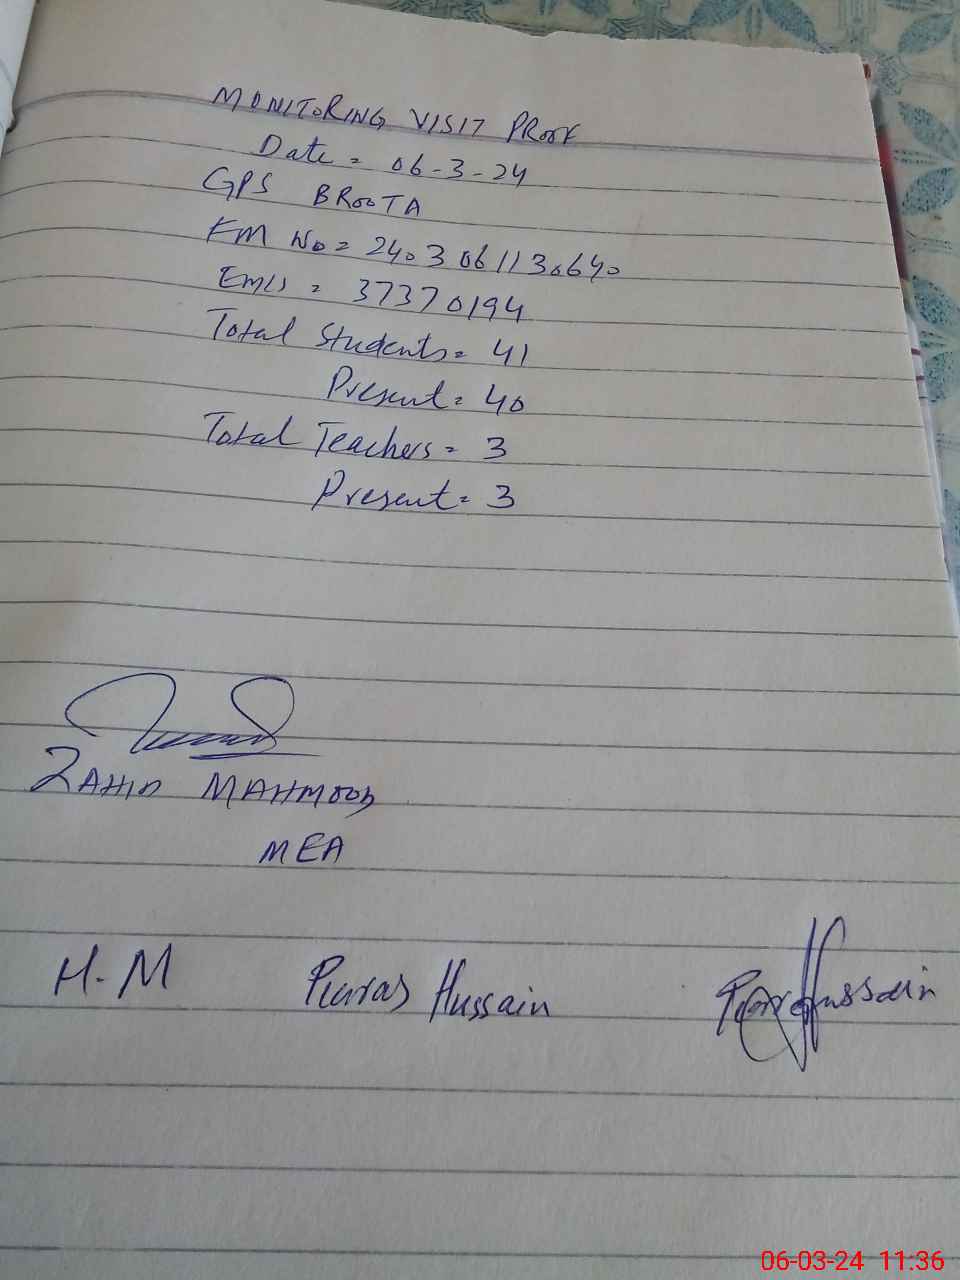 MONITORING VISIT PROOF
Date = 06-3-24
GPS BROOTA
KM No = 2403061130640
EMIS = 37370194
Total Students = 41
Present = 40
Total Teachers = 3
Present = 3
ZAHID MAHMOOD
MEA
H.M Hussain Hussain
06-03-24 11:36